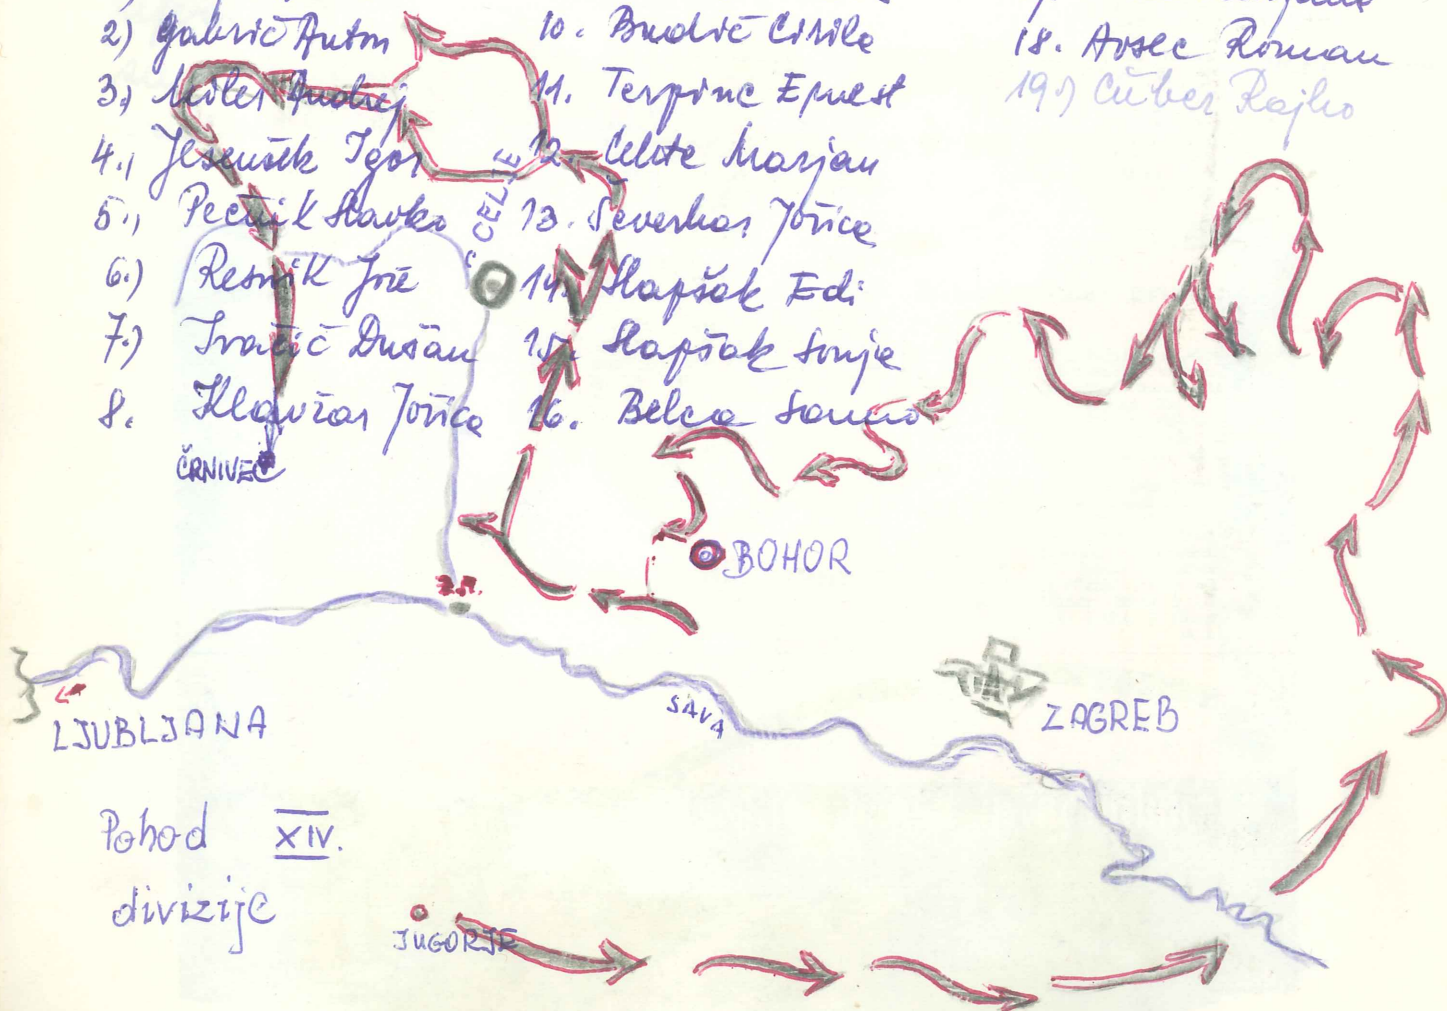 2) Gabrič Anton
3.) Miler Andrej
4., Jesenšek Igor
5., Pečnik Slavko
6.) Resnik Jože
7.) Ivačič Dušan
8. Klavžar Jožica
10. Budič Cirila
11. Terpinc Ernest
12. Čelote Marjan
13. Severkar Jožica
14. Slapšak Edi
15. Slapšak Sonja
16. Belca
18. Avsec Roman
19.) Čuber Rajko
CELJE
ČRNIVEC
BOHOR
SAVA
ZAGREB
LJUBLJANA
Pohod XIV.
divizije
JUGORJE